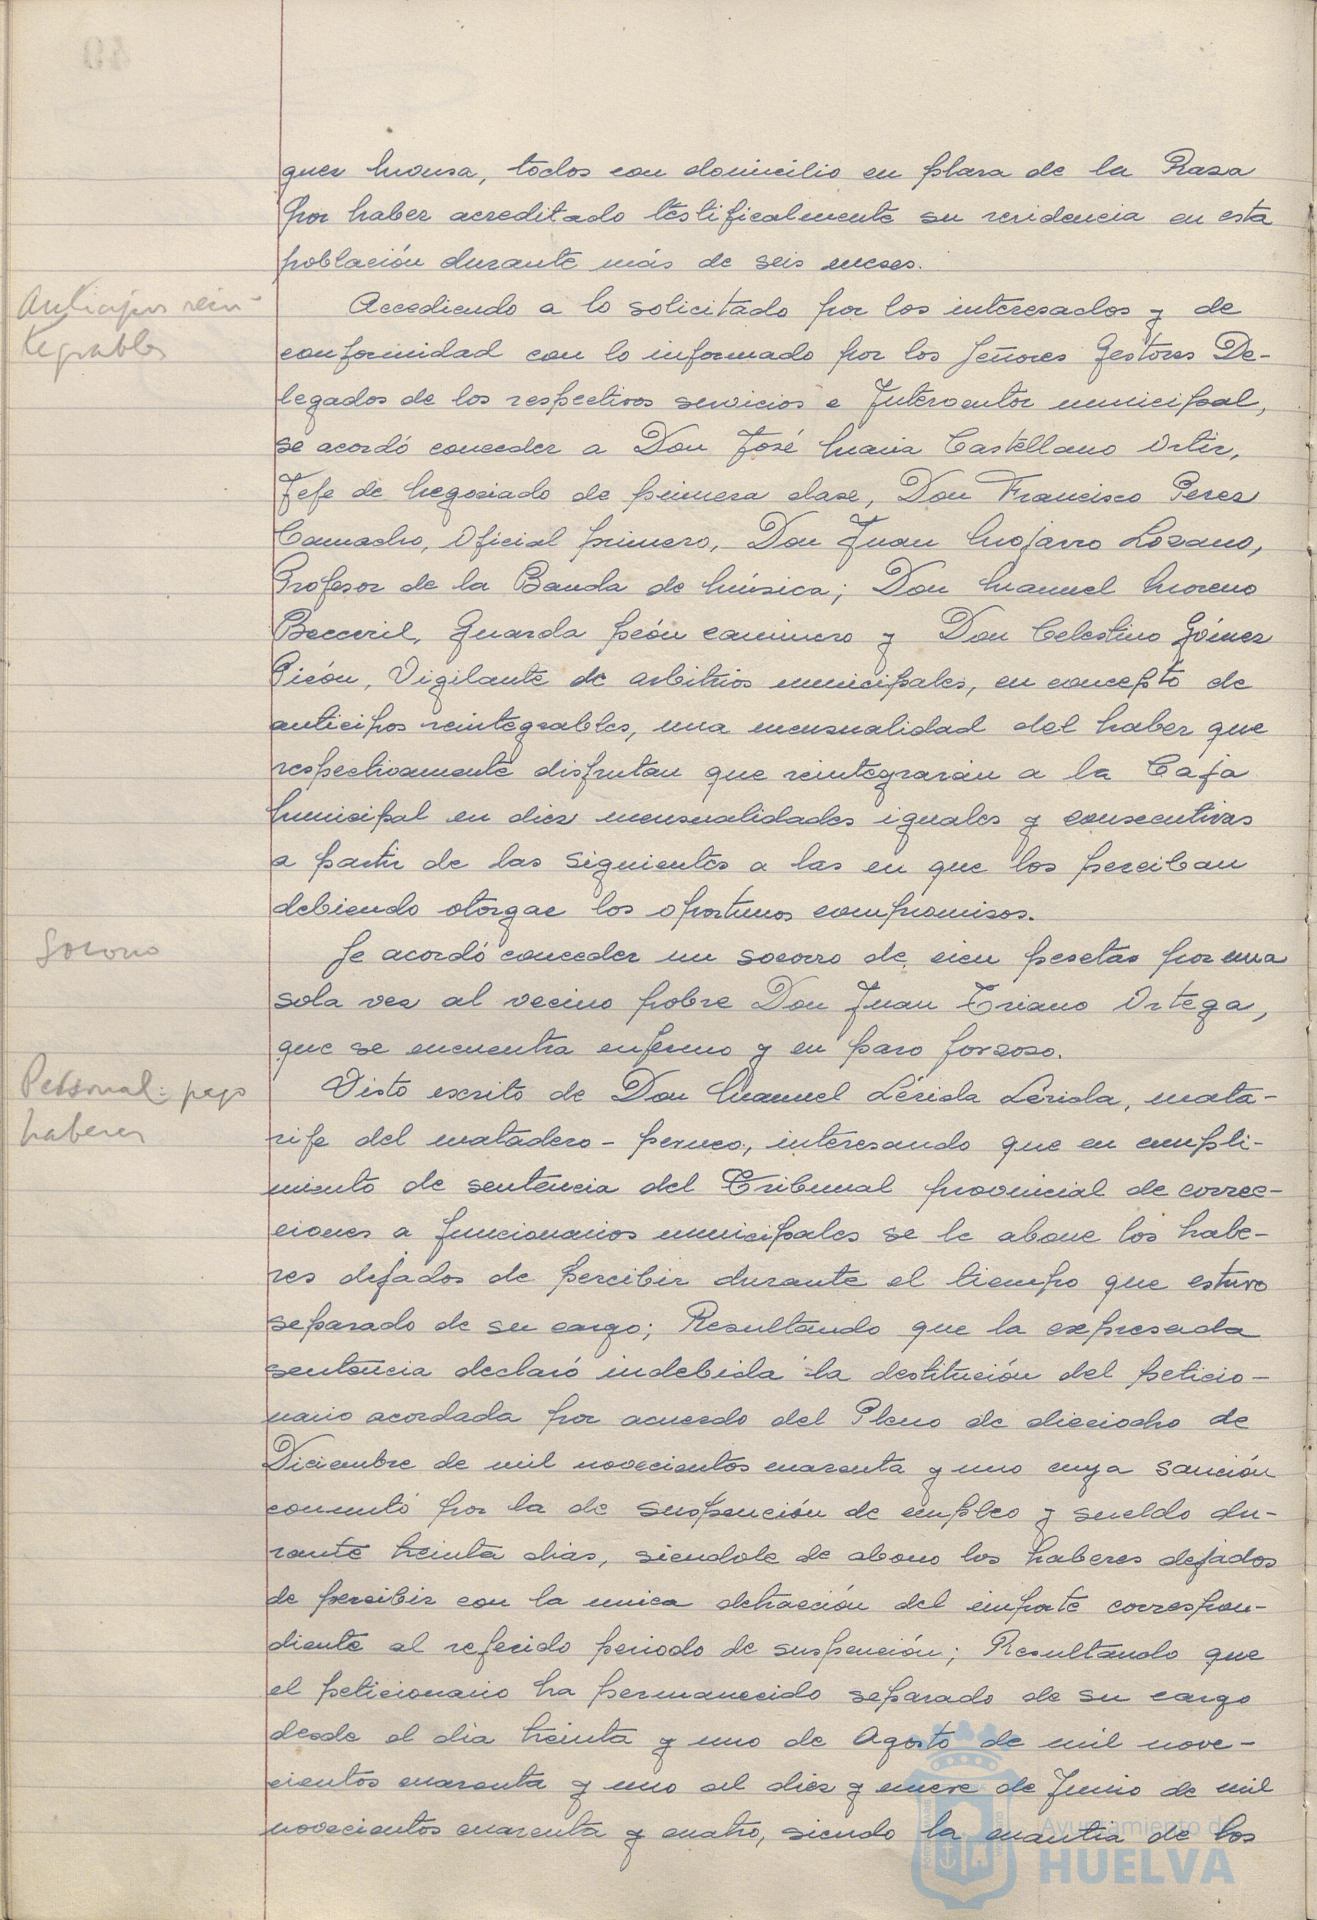 quez Mousa, todos con domicilio en plaza de la Raza
por haber acreditado testificalmente su residencia en esta
población durante más de seis meses.
Anticipos rein-
tegrables
Accediendo a lo solicitado por los interesados y de
conformidad con lo informado por los Señores Gestores De-
legados de los respectivos servicios e Interventor municipal,
se acordó conceder a Don José Maria Castellano Ortiz,
Jefe de Negociado de primera clase, Don Francisco Perez
Camacho, Oficial primero, Don Juan Mojarro Lozano,
Profesor de la Banda de Música; Don Manuel Moreno
Becceril, Guarda peón caminero y Don Celestino Gómez
Picón, Vigilante de arbitrios municipales, en concepto de
anticipos reintegrables, una mensualidad del haber que
respectivamente disfrutan que reintegrarán a la Caja
Municipal en diez mensualidades iguales y consecutivas
a partir de las siguientes a las en que los perciban
debiendo otorgar los oportunos compromisos.
Socorro
Se acordó conceder un socorro de cien pesetas por una
sola vez al vecino pobre Don Juan Triano Ortega,
que se encuentra enfermo y en paro forzoso.
Personal: pago
haberes
Visto escrito de Don Manuel Lérida Lérida, mata-
rife del matadero-, interesando que en cumpli-
miento de sentencia del Tribunal provincial de correc-
ciones a funcionarios municipales se le abone los habe-
res dejados de percibir durante el tiempo que estuvo
separado de su cargo; Resultando que la expresada
sentencia declaró indebida la destitución del peticio-
nario acordada por acuerdo del Pleno de dieciocho de
Diciembre de mil novecientos cuarenta y uno cuya sanción
conmutó por la de suspención de empleo y sueldo du-
rante treinta dias, siendole de abono los haberes dejados
de percibir con la unica detracción del importe correspon-
diente al referido periodo de suspención; Resultando que
el peticionario ha permanecido separado de su cargo
desde el dia treinta y uno de Agosto de mil nove-
cientos cuarenta y uno al diez y nueve de Junio de mil
novecientos cuarenta y cuatro, siendo la cuantia de los
Ayuntamiento de
HUELVA